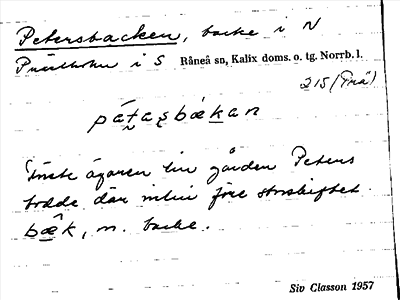 Petersbacken, backe i N
i S Råneå sn, Kalix doms. o. tg. Norrb. l.
215 (Prä)
pátasbækan
Förste ägaren till gården Peters
bodde där intill före storskiftet.
bæ̂k, n. backe.
Siv Classon 1957